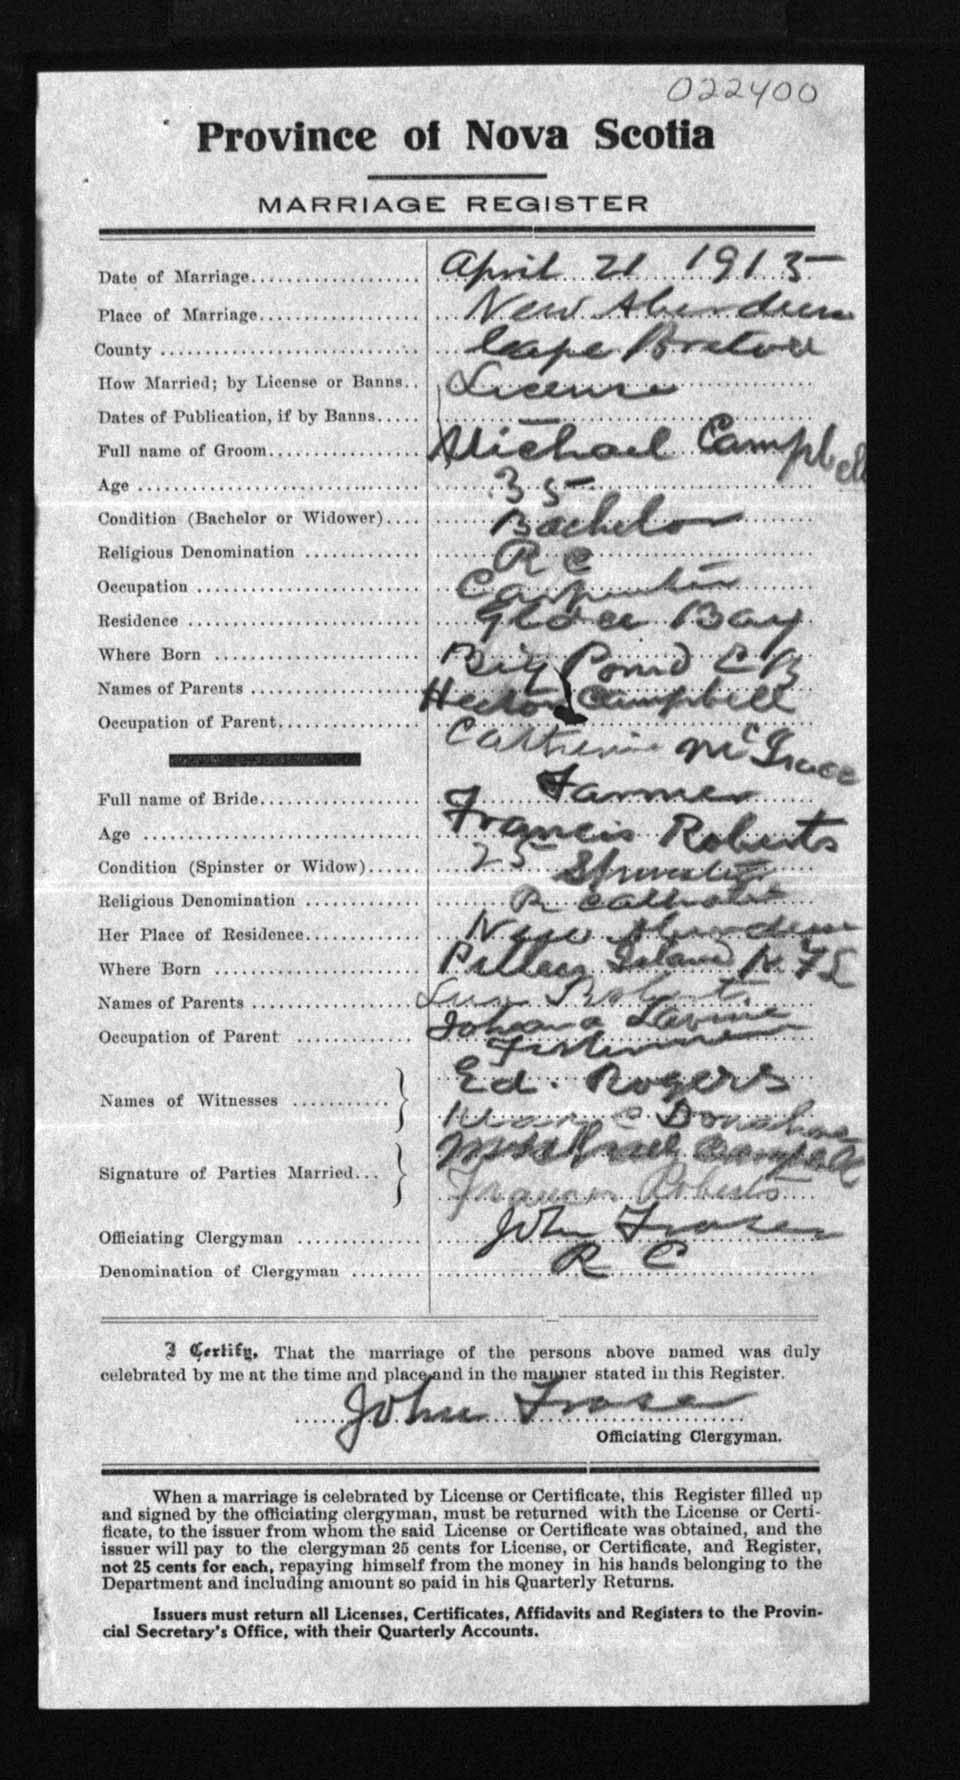 022400
Province of Nova Scotia
MARRIAGE REGISTER
Date of Marriage.................. April 21 1915
Place of Marriage.................. New Aberdeen
County .............................. Cape Breton
How Married; by License or Banns.. License
Dates of Publication, if by Banns.....
Full name of Groom................. Michael Campbell
Age ................................ 35
Condition (Bachelor or Widower).... Bachelor
Religious Denomination ............. R C
Occupation ......................... Carpenter
Residence .......................... Glace Bay
Where Born ........................ Big Pond C B
Names of Parents ................... Hector Campbell
Occupation of Parent................
Catherine
Farmer
Full name of Bride.................. Francis Roberts
Age ................................ 25
Condition (Spinster or Widow)...... Spinster
Religious Denomination ............. R Catholic
Her Place of Residence............. New Aberdeen
Where Born ........................ Pilleys Island N.F.L
Names of Parents ...................
Occupation of Parent ............... Fisherman
Names of Witnesses ........... } Ed. Rogers
Donahoe
Signature of Parties Married... } Michael Campbell
Roberts
Officiating Clergyman .............. John Fraser
Denomination of Clergyman ........ R C
I Certify, That the marriage of the persons above named was duly
celebrated by me at the time and place and in the manner stated in this Register.
John Fraser
Officiating Clergyman.
When a marriage is celebrated by License or Certificate, this Register filled up
and signed by the officiating clergyman, must be returned with the License or Certi-
ficate, to the issuer from whom the said License or Certificate was obtained, and the
issuer will pay to the clergyman 25 cents for License, or Certificate, and Register,
not 25 cents for each, repaying himself from the money in his hands belonging to the
Department and including amount so paid in his Quarterly Returns.
Issuers must return all Licenses, Certificates, Affidavits and Registers to the Provin-
cial Secretary's Office, with their Quarterly Accounts.